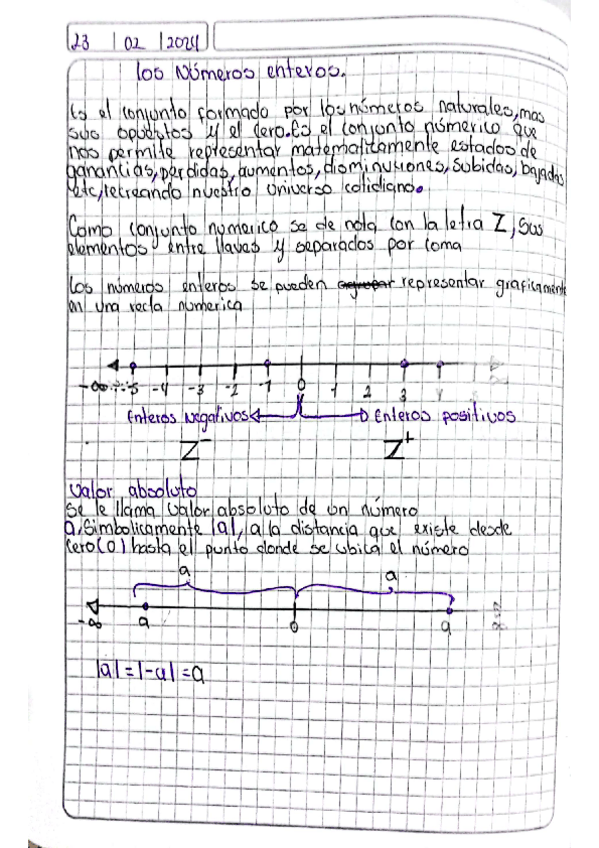 23 | 02 | 2024
los Números enteros.
Es el conjunto formado por los números naturales, mas
sus opuestos y el cero. Es el conjunto númerico que
nos permite representar matematicamente estados de
ganancias, perdidas, aumentos, disminusiones, subidas, bajadas
etc, recreando nuestro universo cotidiano.
Como conjunto numerico se de nota con la letra Z, sus
elementos entre llaves y separados por coma
Los números enteros se pueden representar graficament
en una recta numerica
-∞ -5 -4 -3 -2 -1 0 1 2 3 4
Enteros Negativos Enteros positivos
Z⁻ Z⁺
Valor absoluto
Se le llama Valor absoluto de un número
a, Simbolicamente |a|, a la distancia que existe desde
cero (0) hasta el punto donde se ubica el número
a a
-∞ a 0 a
|a|=|-a|=a